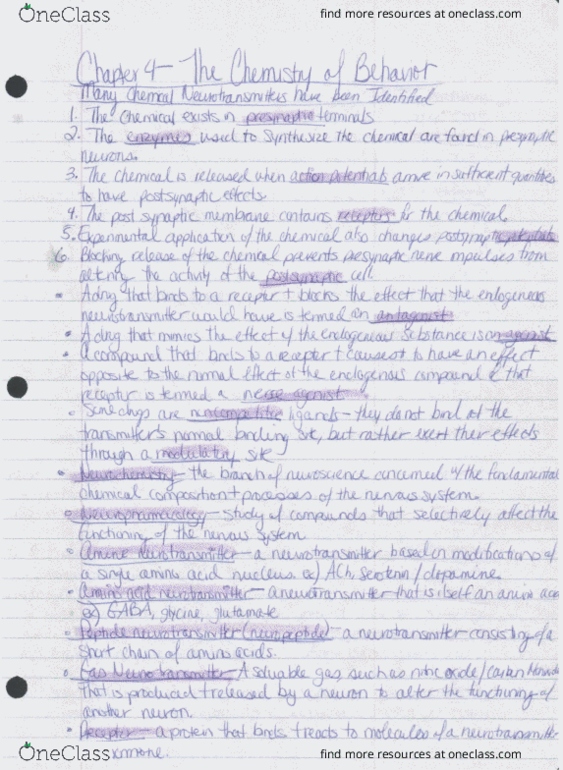 OneClass
find more resources at oneclass.com
Chapter 4 - The Chemistry of Behavior
Many Chemical Neurotransmitters have been Identified
1. The Chemical exists in presynaptic terminals
2. The enzymes used to synthesize the chemical are found in presynaptic
neurons.
3. The chemical is released when action potentials arrive in sufficient quantities
to have postsynaptic effects.
4. The post synaptic membrane contains receptors for the chemical.
5. Experimental application of the chemical also changes postsynaptic potentials
6. Blocking release of the chemical prevents presynaptic nerve impulses from
altering the activity of the postsynaptic cell.
• A drug that binds to a receptor + blocks the effect that the endogenous
neurotransmitter would have is termed an antagonist
• A drug that mimics the effect of the endogenous substance is an agonist
• A compound that binds to a receptor + causes it to have an effect
opposite to the normal effect of the endogenous compound @ that
receptor is termed a agonist.
• Some drugs are noncompetitive ligands - they do not bind at the
transmitter's normal binding site, but rather exert their effects
through a modulatory site
• Neurochemistry - the branch of neuroscience concerned w/ the fundamental
chemical composition + processes of the nervous system.
• Neuropharmacology - study of compounds that selectively affect the
functioning of the nervous system.
• Amine neurotransmitter - a neurotransmitter based on modifications of
a single amino acid nucleus. ex) ACh, serotonin / dopamine.
• Amino acid neurotransmitter - a neurotransmitter that is itself an amino acid
ex) GABA, glycine, glutamate
• Peptide neurotransmitter (neuropeptide) - a neurotransmitter consisting of a
short chain of amino acids.
• Gas Neurotransmitter - A soluable gas such as nitric oxide / Carbon Monoxide
that is produced + released by a neuron to alter the functioning of
another neuron.
• Receptor - a protein that binds + reacts to molecules of a neurotransmitter
OneClass
find more resources at oneclass.com